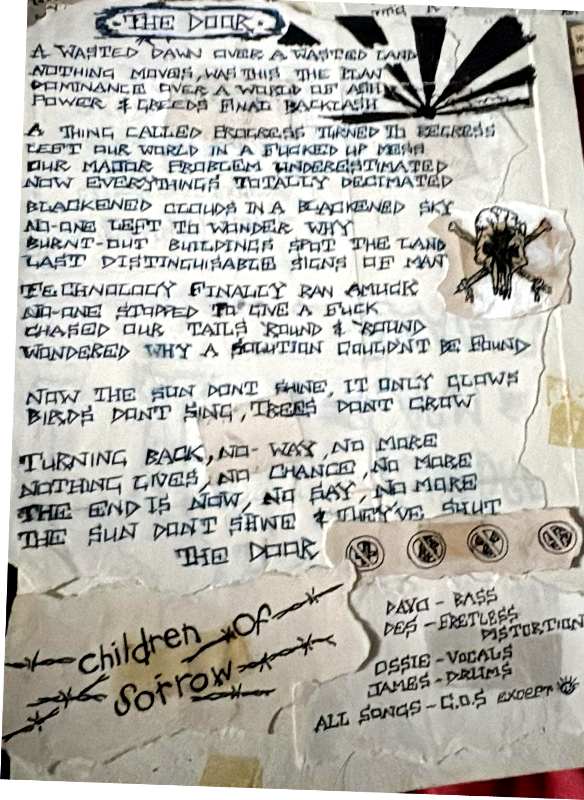 THE DOOR
A WASTED DAWN OVER A WASTED LAND
NOTHING MOVES, WAS THIS THE PLAN
DOMINANCE OVER A WORLD OF ASH
POWER & GREEDS FINAL BACKLASH
A THING CALLED PROGRESS TURNED TO REGRESS
LEFT OUR WORLD IN A FUCKED UP MESS
OUR MAJOR PROBLEM UNDERESTIMATED
NOW EVERYTHINGS TOTALLY DECIMATED
BLACKENED CLOUDS IN A BLACKENED SKY
NO-ONE LEFT TO WONDER WHY
BURNT-OUT BUILDINGS SPOT THE LAND
LAST DISTINGUISABLE SIGNS OF MAN
TECHNOLOGY FINALLY RAN AMUCK
NO-ONE STOPPED TO GIVE A FUCK
CHASED OUR TAILS 'ROUND & 'ROUND
WONDERED WHY A SOLUTION COULDN'T BE FOUND
NOW THE SUN DONT SHINE, IT ONLY GLOWS
BIRDS DONT SING, TREES DONT GROW
TURNING BACK, NO-WAY, NO MORE
NOTHING GIVES, NO CHANCE, NO MORE
THE END IS NOW, NO SAY, NO MORE
THE SUN DONT SHINE & THEY'VE SHUT
THE DOOR
children of
sorrow
DAVO - BASS
DES - FRETLESS
DISTORTION
OSSIE - VOCALS
JAMES - DRUMS
ALL SONGS - C.O.S except